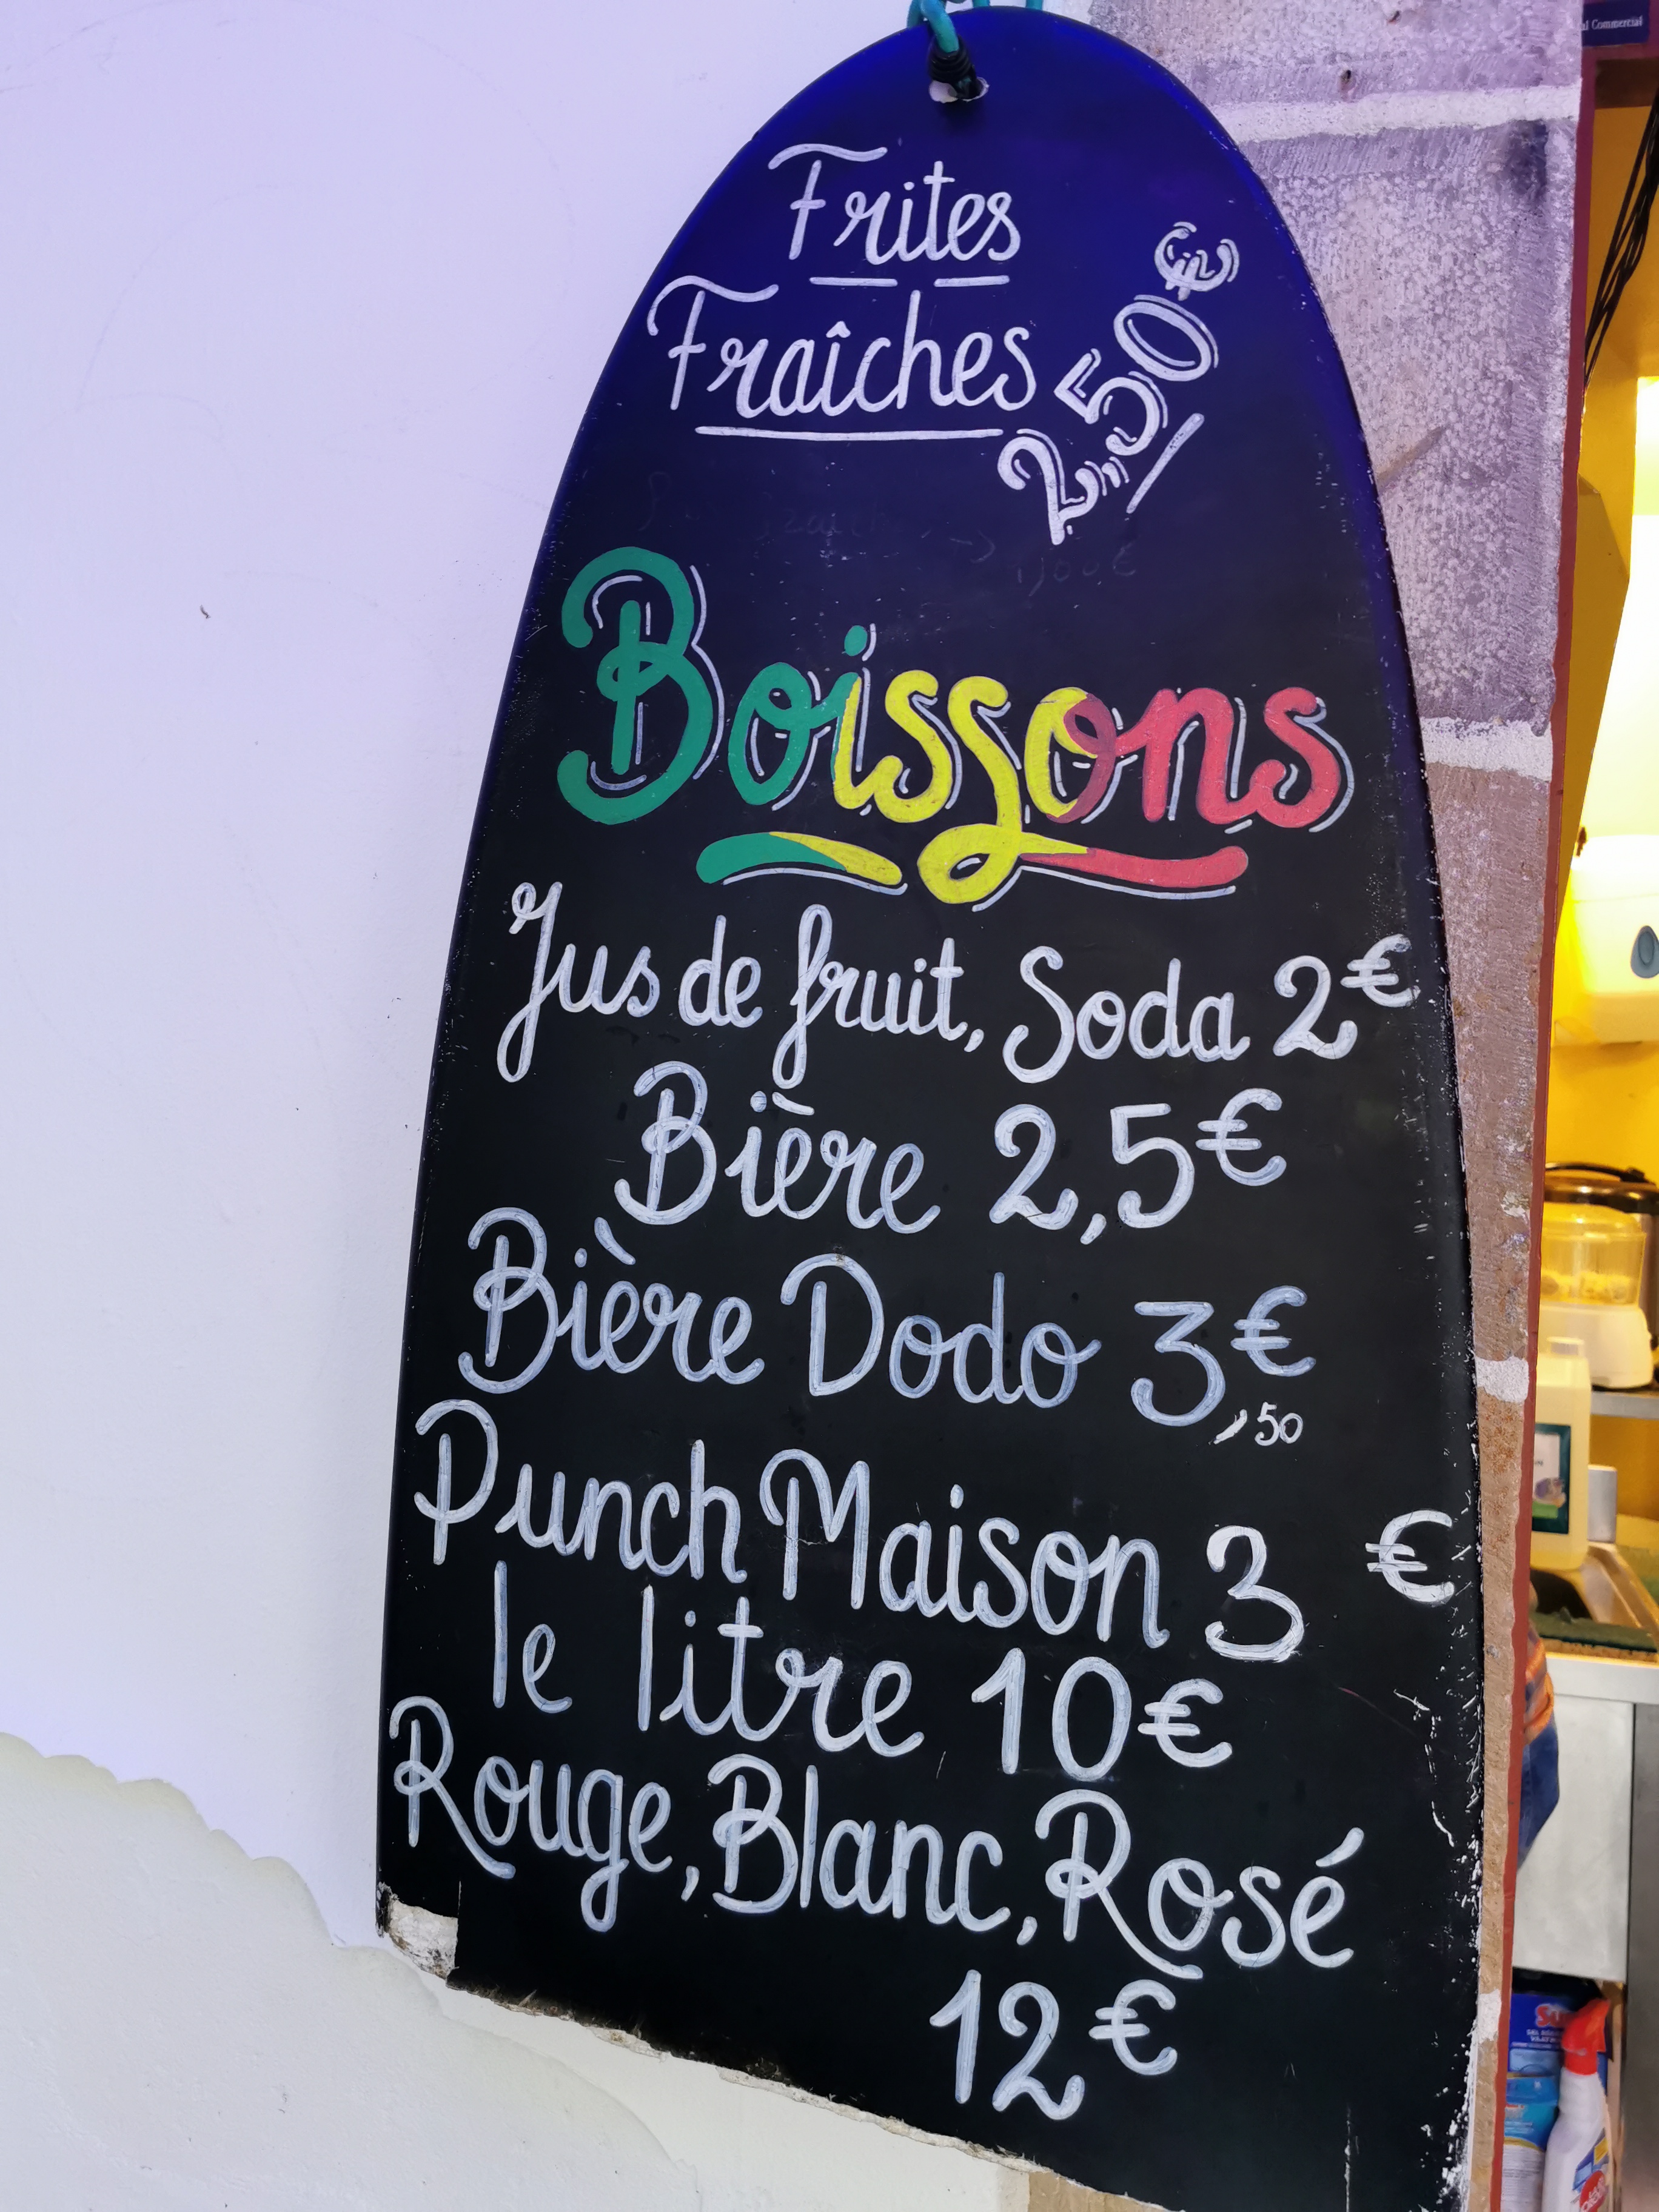 Frites
Fraîches
2,50€
Boissons
Jus de fruit, Soda 2€
Bière 2,5€
Bière Dodo 3€
,50
Punch Maison 3 €
le litre 10€
Rouge, Blanc, Rosé
12€
Commercial